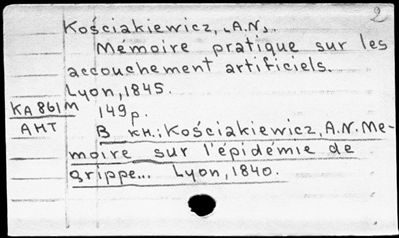 2
Kościakiewicz, „A.N„.
Mémoire pratique sur les
accouchement artificiels.
Lyon, 1845.
KA 861M 149 p.
АНТ В кн.: Kościakiewicz, A.N. Me-
moire sur l'épidémie de
grippe... Lyon, 1840.